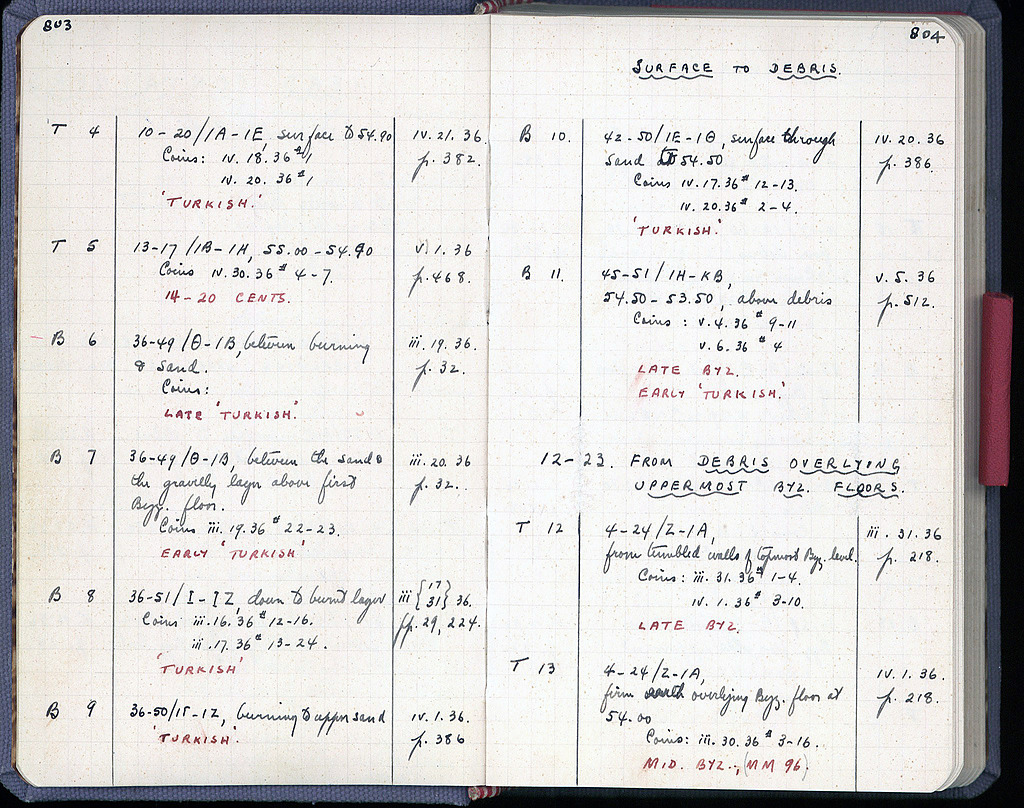 803
T 4 10-20/IA-IE, surface to 54.90 iv. 21. 36
Coins: iv. 18. 36 #1 p. 382.
iv. 20. 36 #1
'TURKISH.'
T 5 13-17/IB-IH, 55.00-54.90 v. 1. 36
Coins iv. 30. 36 # 4-7. p. 468.
14-20 CENTS.
B 6 36-49/Θ-IB, between burning iii. 19. 36.
& sand. p. 32.
Coins:
LATE 'TURKISH'.
B 7 36-49/Θ-IB, between the sand & iii. 20. 36
the gravelly layer above first p. 32.
Byz. floor.
Coins iii. 19. 36 # 22-23.
EARLY 'TURKISH'
B 8 36-51/I-IZ, down to burnt layer iii {17 31} 36.
Coins iii. 16. 36 # 12-16. pp. 29, 224.
iii. 17. 36 # 13-24.
'TURKISH'
B 9 36-50/IΓ-IZ, burning to upper sand iv. 1. 36.
'TURKISH'. p. 386
804
SURFACE TO DEBRIS.
B 10. 42-50/IE-IΘ, surface through iv. 20. 36
sand to 54.50 p. 386.
Coins iv. 17. 36 # 12-13.
iv. 20. 36 # 2-4.
'TURKISH.'
B 11. 45-51/IH-KB, v. 5. 36
54.50-53.50, above debris p. 512.
Coins: v. 4. 36 # 9-11
v. 6. 36 # 4
LATE BYZ.
EARLY 'TURKISH.'
12-23. FROM DEBRIS OVERLYING
UPPERMOST BYZ. FLOORS.
T 12 4-24/Z-IA, iii. 31. 36
from tumbled walls of topmost Byz. level. p. 218.
Coins: iii. 31. 36 # 1-4.
iv. 1. 36 # 3-10.
LATE BYZ.
T 13 4-24/Z-IA, iv. 1. 36.
firm earth overlying Byz. floor at p. 218.
54.00
Coins: iii. 30. 36 # 3-16.
MID. BYZ.; (MM 96)